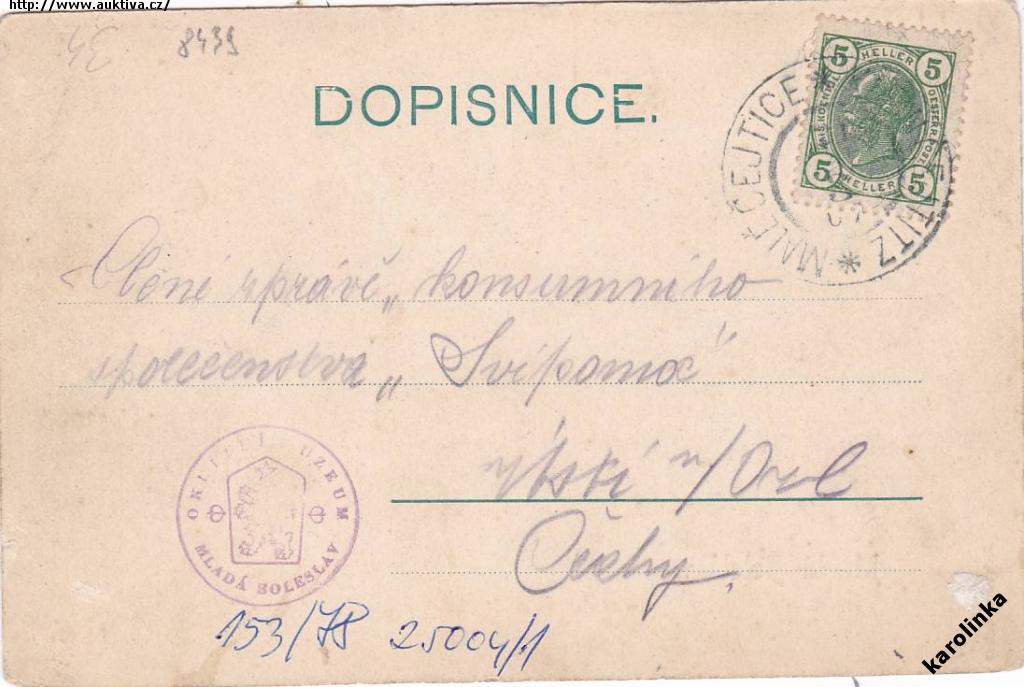 http://www.auktiva.cz/
8439
DOPISNICE.
5 HELLER 5
5 HELLER 5
* MALČEJTICE *
Ctěné správě „konsumního
společenstva „Svépomoc"
Ústí n/Orl
Čechy,
OKRESNÍ MUZEUM
MLADÁ BOLESLAV
153/78 25004/1
karolinka